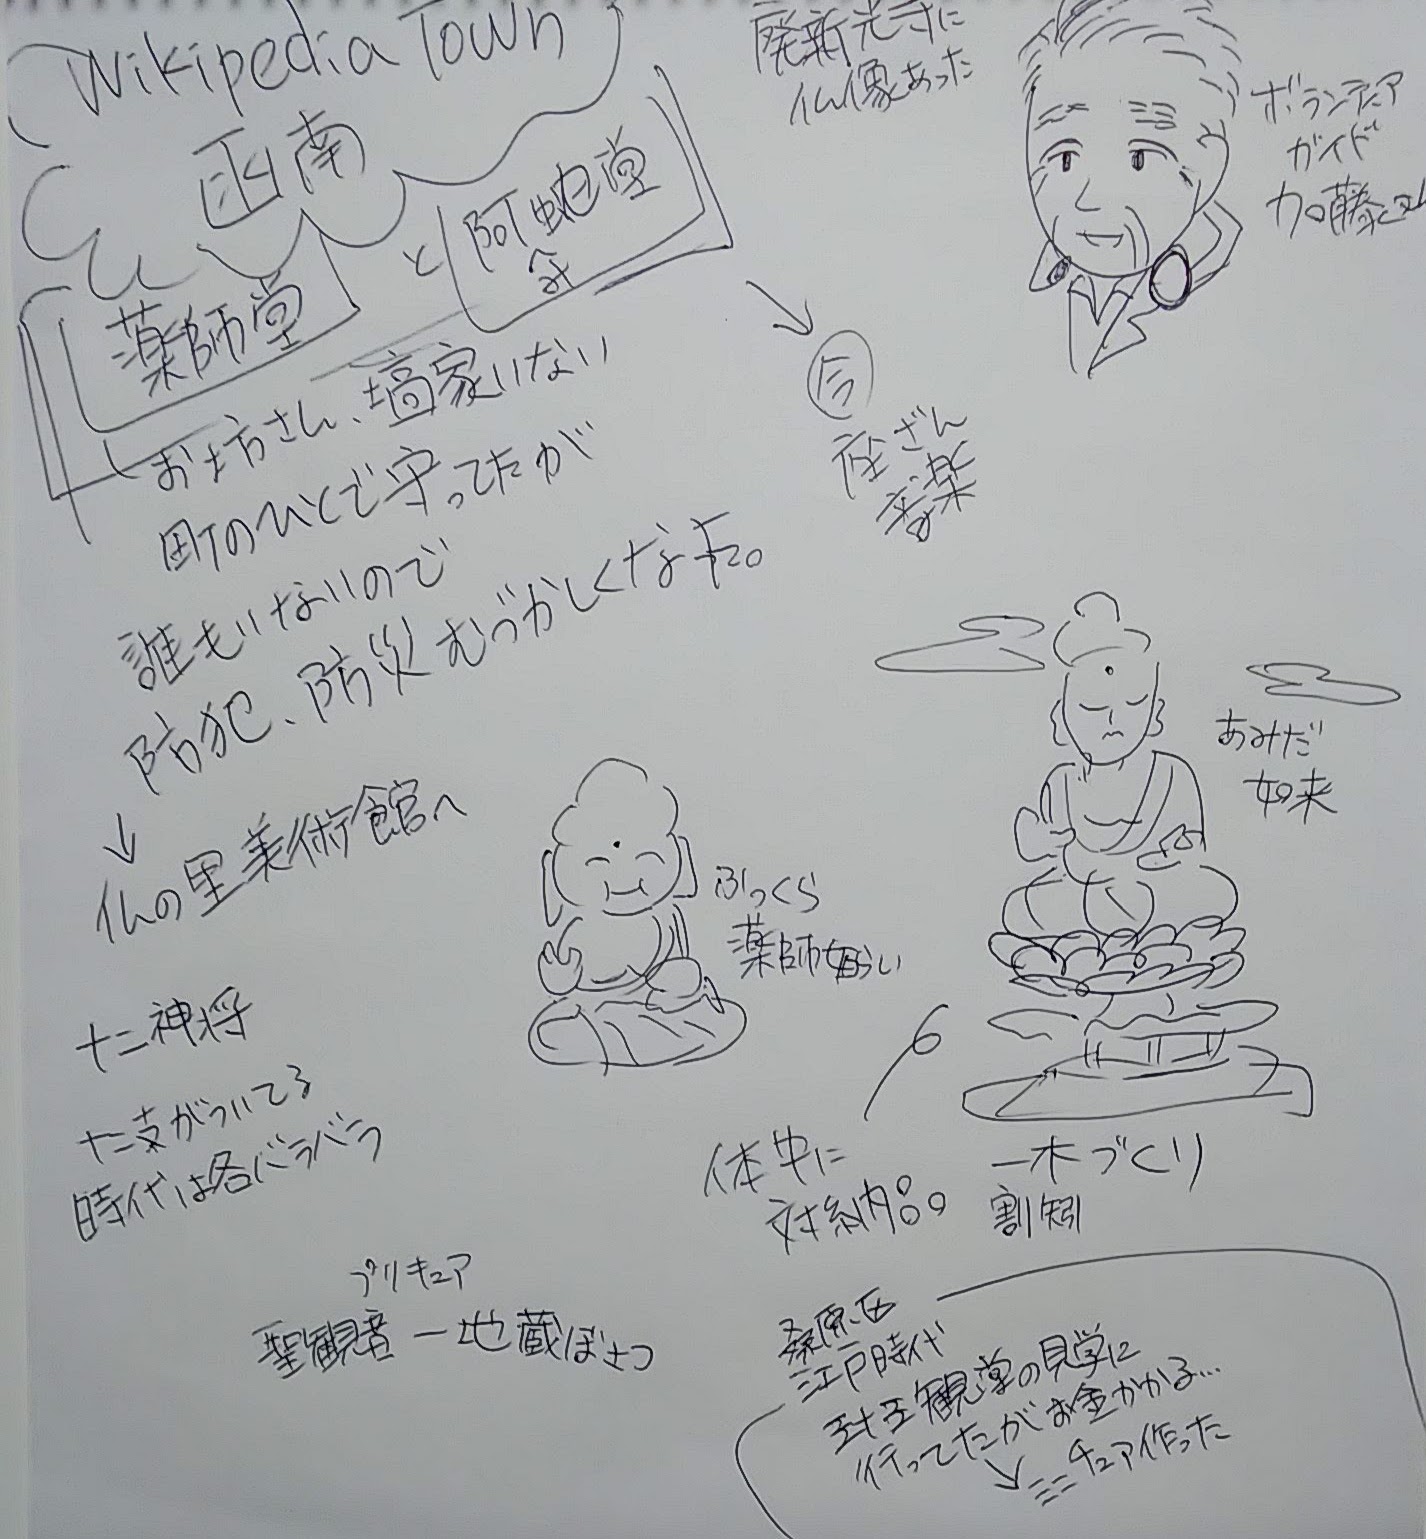 Wikipedia Town
函南
薬師堂
と
阿弥陀堂
廃新光寺に
仏像あった
ボランティア
ガイド
加藤さん
お坊さん、檀家いない
町のひとで守ってたが
誰もいないので
防犯、防災むづかしくなった。
↓
仏の里美術館へ
→
今
座ざん
音楽
あみだ
如来
ふっくら
薬師如らい
十二神将
十二支がついてる
時代は各バラバラ
体中に
納品
一木づくり
割矧
プリキュア
聖観音 ー 地蔵ぼさつ
桑原区
江戸時代
観堂の見学に
行ってたがお金かかる…
→ミニチュア作った